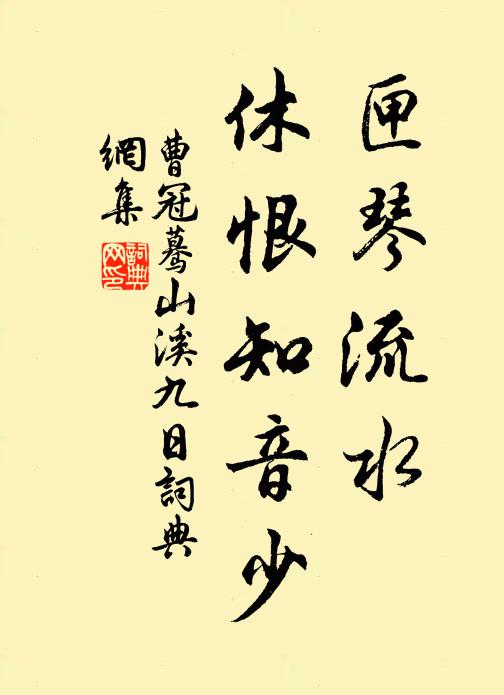 匣琴流水
休恨知音少
曹冠驀山溪九日詞典
網集
詞典
网印